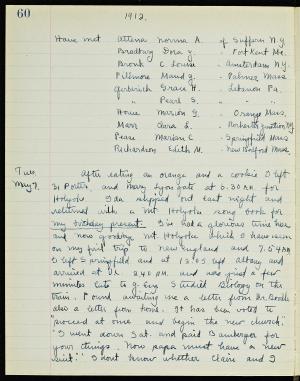 60
1912.
Have met Attena Norma A. of Suffern N.Y.
Bradbury Dora y. " Fort Kent Me.
Bronk C Louise " Amsterdam N.Y.
Fillmore Maud " Palmer Mass
Gerberich Grace H. " Lebanon Pa.
" Pearl S. " "
House Marion G. " Orange Mass.
Marr Clara E.
Pease Marion C " Springfield Mass
Richardson Edith M. " New Bedford Mass.
Tues. After eating an orange and a cookie I left
May 7. 31 Porter, and Mary Lyon gate at 6.30 A.M. for
Holyoke. Ida slipped out last night and
returned with a Mt Holyoke song book for
my birthday present. I've had a glorious time here
and now goodby Mt Holyoke which I have seen
on my first trip to New England and 7.54 A.M
I left Springfield and at 12.05 left Albany and
arrived at 2.40 P.M. and was just a few
minutes late to I studied Biology on the
train. Found awaiting me a letter from Dr.
also a letter from home. It has been voted to
"proceed at once and begin the new church."
"I went down Sat. and paid Bamberger for
your things. Now papa must have a new
suit." I don't know whether Claire and I